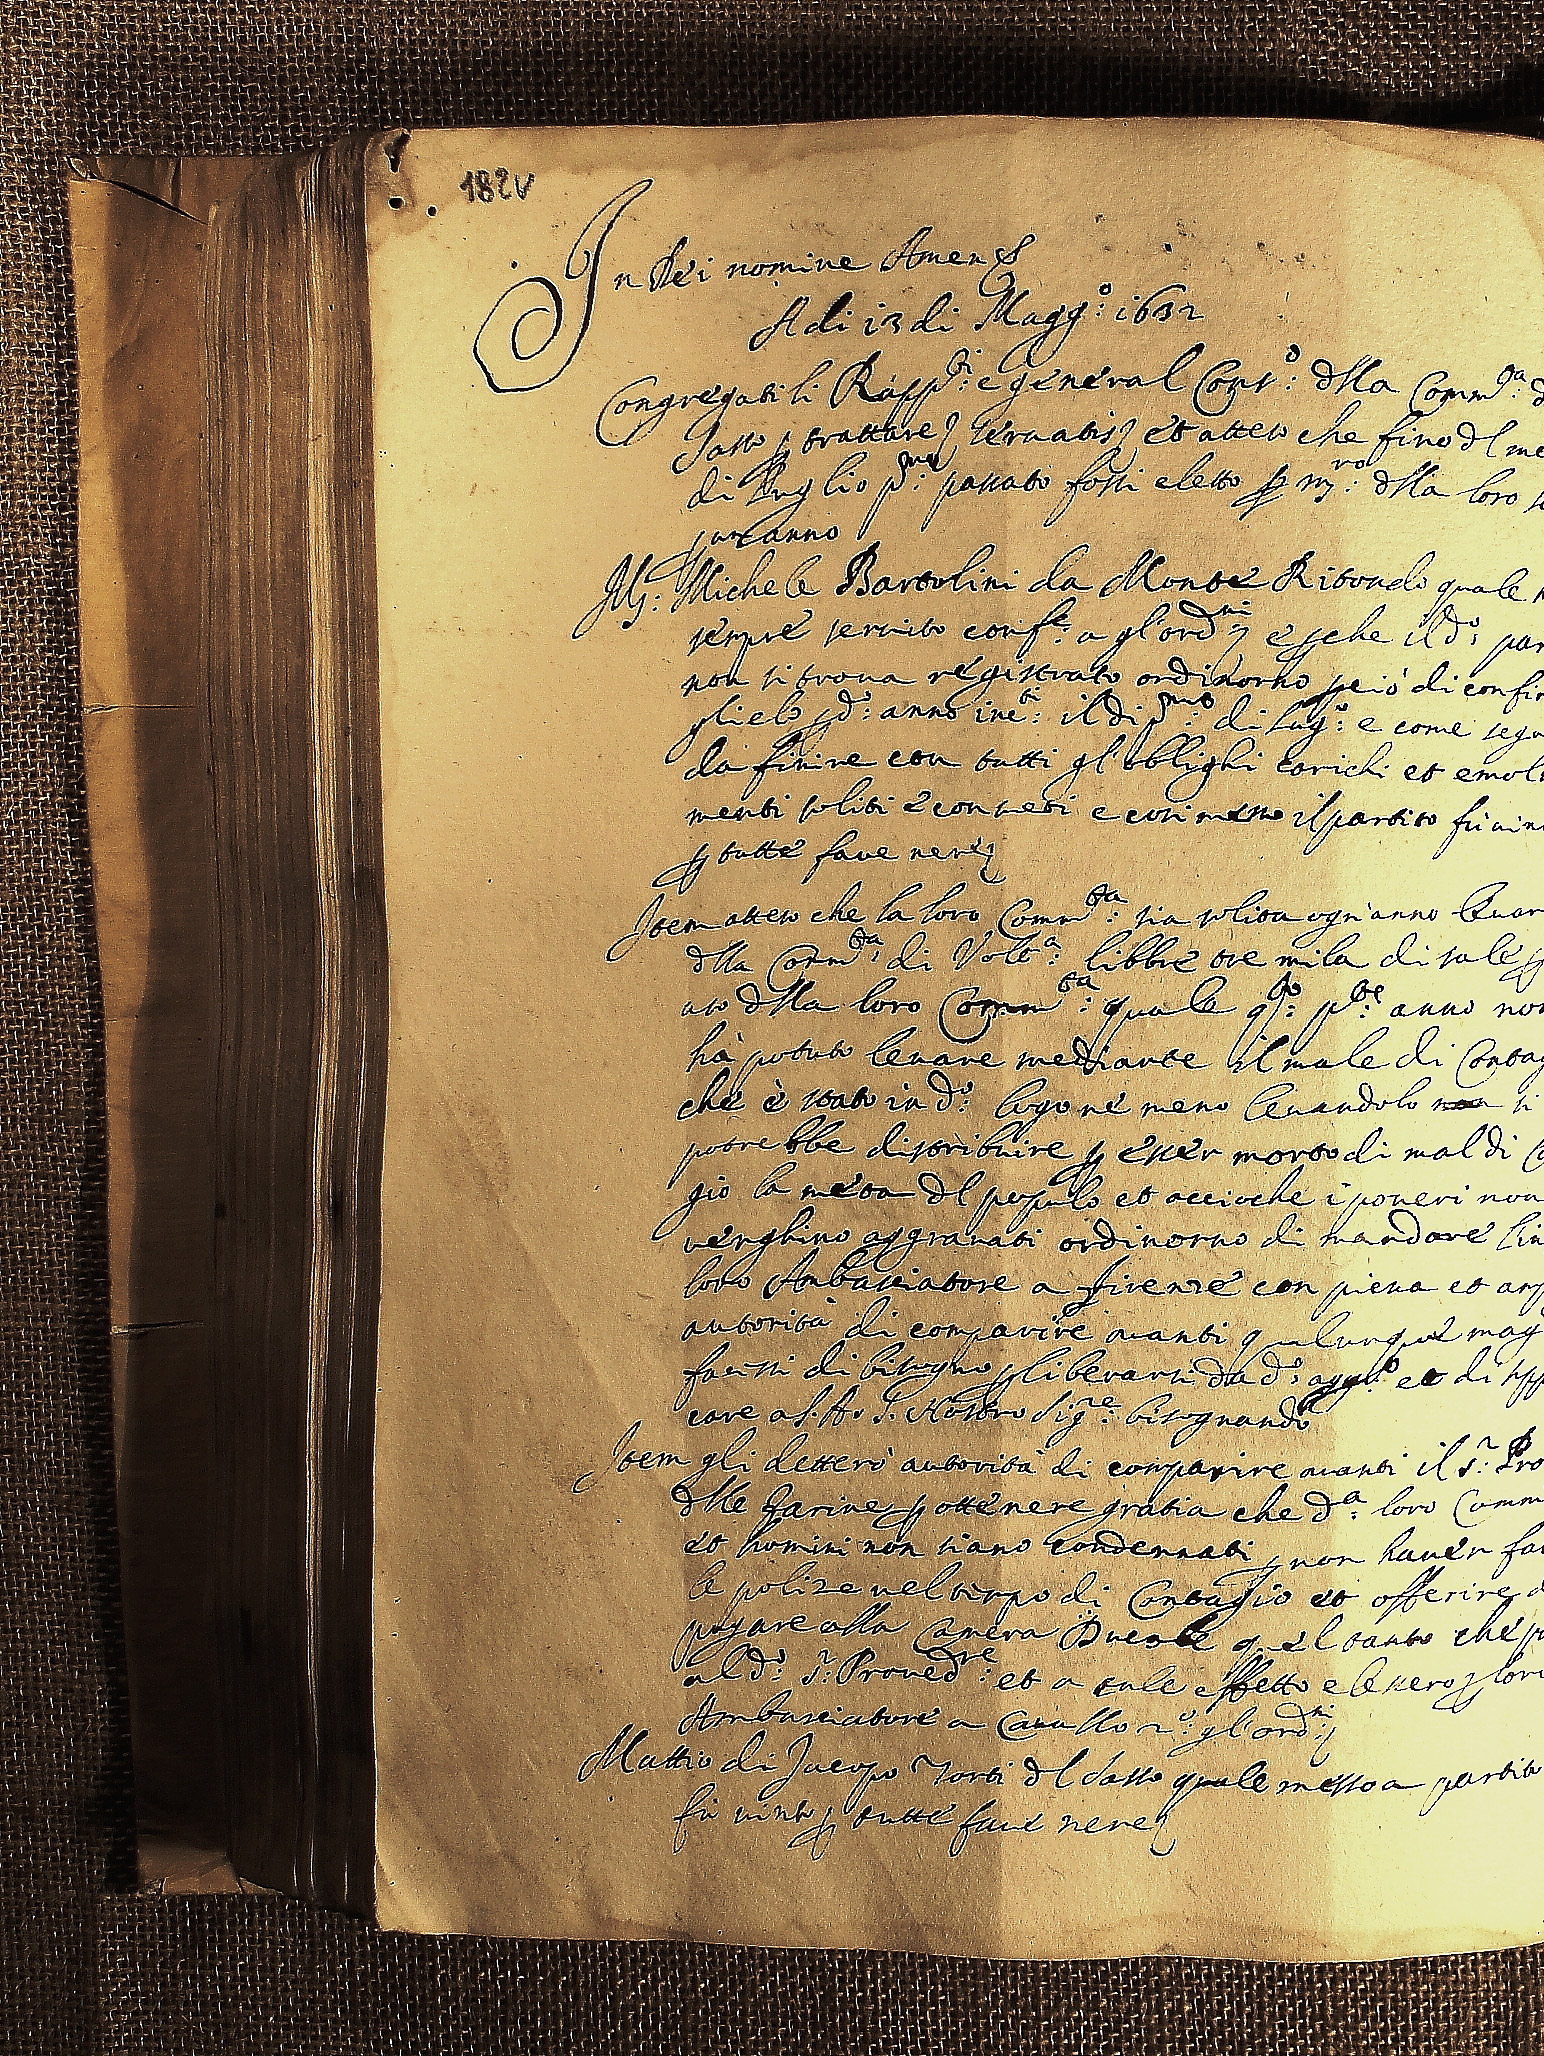 182v
In Dei nomine Amen
A di 13 di Magg:o 1632
Congregati li Rapp:ti e general Cons:o dlla Comm:ta
Sasso p trattare servatis et atteso che fino dl me
di Luglio p:mo passato fossi eletto p m:ro dlla loro
p un anno
Ms: Michele Bartolini da Monte Ritondo quale
sempre servito conf:e a gl'ord:ni e pche il d:o par
non si trova registrato ordinorno però di confir
glielo p d:o anno in:to il di p:mo di Lug:o e come segu
da finire con tutti gl'obblighi carichi et emolu
menti soliti e consueti e così messo il partito fù vin
p tutte fave nere
Item atteso che la loro Comm:ta sia solita ogn'anno levar
dlla Comm:ta di Volt:a libbre tre mila di sale p
uso dlla loro Comm:ta quale q:to p:te anno non
hà potuto levare mediante il male di Contag
che è stato in d:o logo ne meno levandolo non si
potrebbe distribuire p esser morto di mal di Co
gio la meta dl populo et accioche i poveri non
venghino aggravati ordinorno di mandare
loro Ambasciatore a Firenze con piena et amp
autorità di comparire avanti qualunque mag
facessi di bisogno p liberarsi da d:o agg:o et di supp
care a S. A. S. Nostro Sig:re bisognando
Item gli dettero autorità di comparire avanti il S:r Pro
dlle farine p ottenere gratia che d:a loro Comm
et homini non siano condennati p non haver fa
le polize nel tempo di Contagio et offerire d
pagare alla Camera Ducale quel tanto che p
al d:o S:r Proved:re et a tale effetto elessero p loro
Ambasciatore a Cavallo s:o gl'ord:ni
Mattio di Jacopo Torti dl Sasso quale messo a partito
fù vinto p tutte fave nere